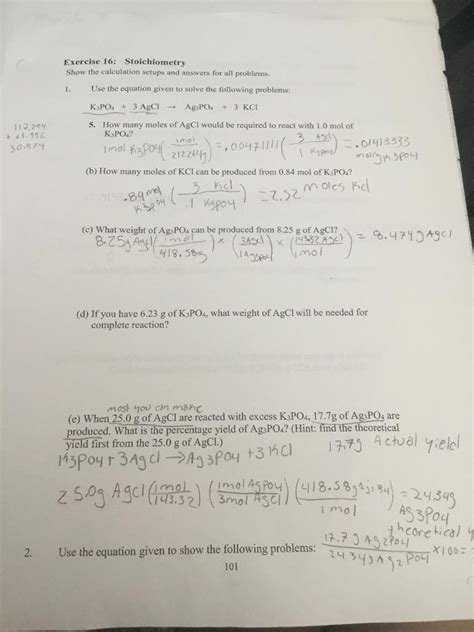 Exercise 16: Stoichiometry
Show the calculation setups and answers for all problems.
1. Use the equation given to solve the following problems:
K3PO4 + 3 AgCl → Ag3PO4 + 3 KCl
5. How many moles of AgCl would be required to react with 1.0 mol of
K3PO4?
30.974
1mol K3PO4 (1mol/212.264g) = .00471111 (3 Agcl/1 K3PO4) = .01413333
mol/g K3PO4
(b) How many moles of KCl can be produced from 0.84 mol of K3PO4?
.84 mol K3PO4 (3 Kcl/1 K3PO4) = 2.52 moles Kcl
(c) What weight of Ag3PO4 can be produced from 8.25 g of AgCl?
8.25g Agcl (1mol/418.58g) x (3Agcl/1Ag3PO4) x (143.32 Agcl/1mol) = 8.474g Agcl
(d) If you have 6.23 g of K3PO4, what weight of AgCl will be needed for
complete reaction?
most you can make
(e) When 25.0 g of AgCl are reacted with excess K3PO4, 17.7g of Ag3PO4 are
produced. What is the percentage yield of Ag3PO4? (Hint: find the theoretical
yield first from the 25.0 g of AgCl.)
17.7g Actual yield
K3PO4 + 3Agcl → Ag3PO4 + 3Kcl
25.0g AgCl (1mol/143.32) (1mol Ag3PO4/3mol AgCl) (418.58g Ag3PO4/1 mol) = 24.34g
Ag3PO4
theoretical
2. Use the equation given to show the following problems:
17.7g Ag3PO4/24.34g Ag3PO4 x100=
101